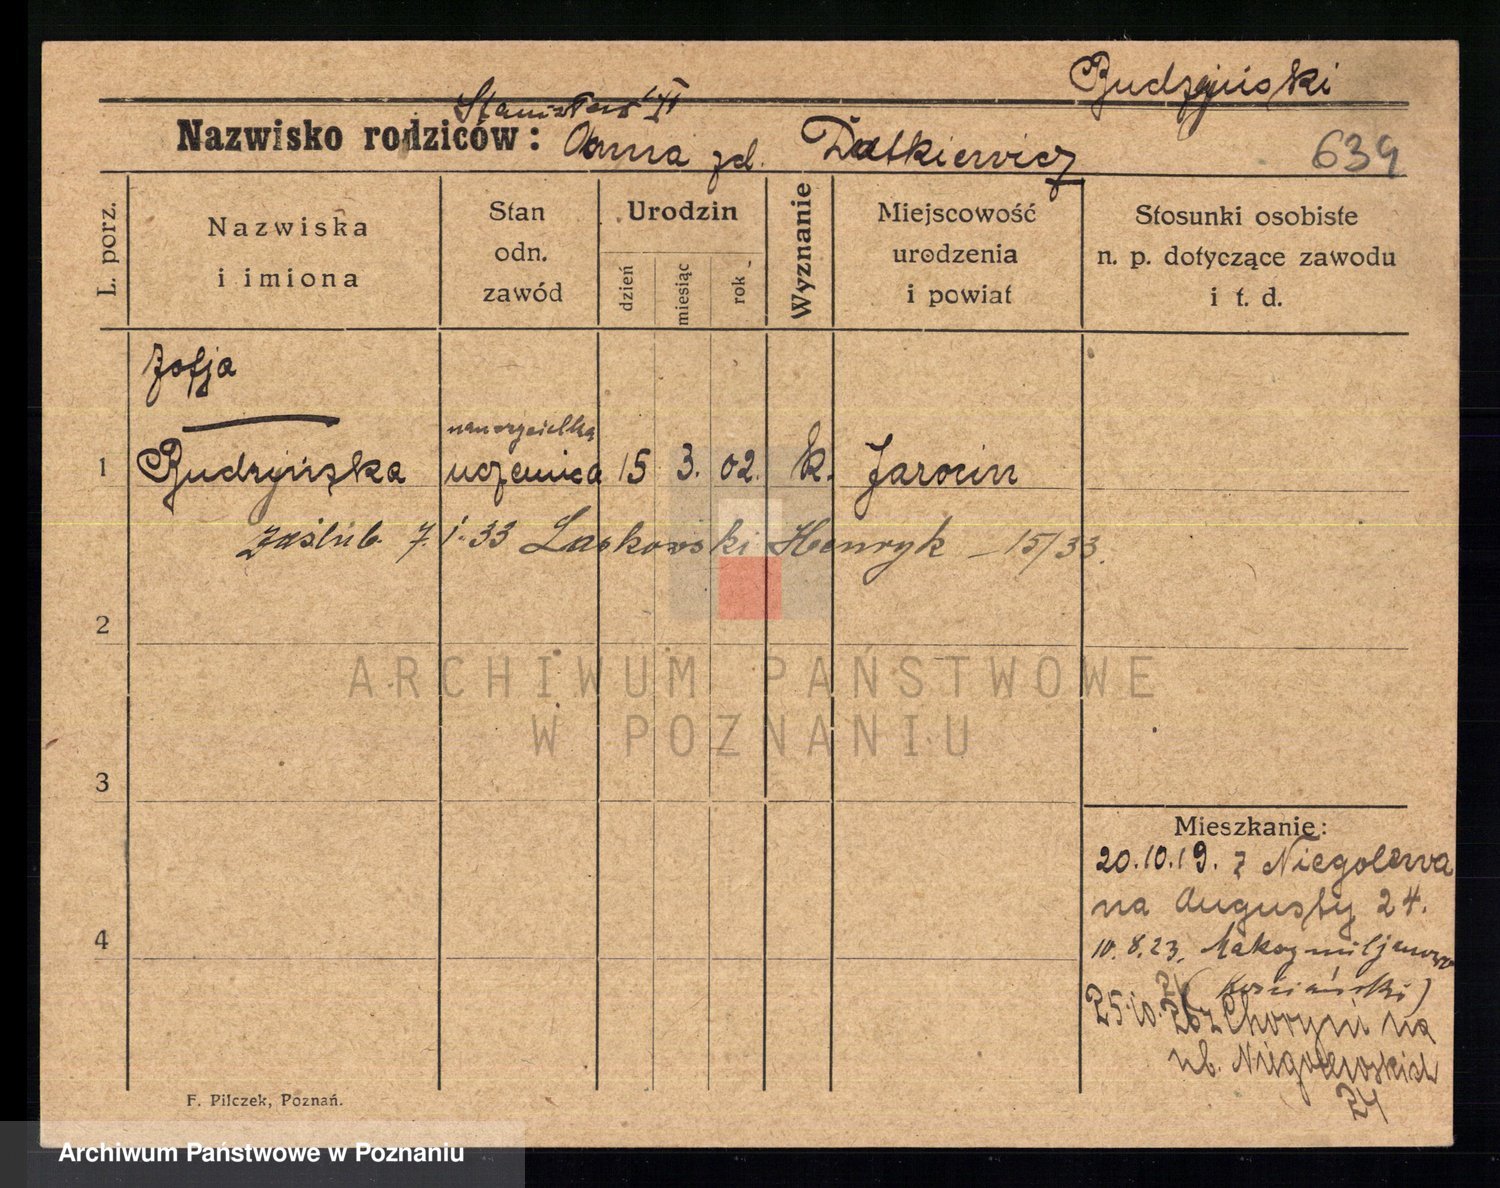 Budzyński
Stanisław
Nazwisko rodziców: Anna zd. Datkiewicz
639
L. porz.
Nazwiska
i imiona
Stan
odn.
zawód
Urodzin
dzień
miesiąc
rok
Wyznanie
Miejscowość
urodzenia
i powiat
Stosunki osobiste
n. p. dotyczące zawodu
i t. d.
Zofja
nauczycielka
1 Budzyńska uczenica 15 3. 02. k. Jarocin
zaślub. 7.1.33 Laskowski Henryk – 15/33.
2
ARCHIWUM PAŃSTWOWE
W POZNANIU
3
Mieszkanie:
20.10.19. z Niegolewa
na Augusty 24.
4
10.8.23.
(Kościański)
25.10. z Choryń na
ul. Niegolewskich
24
F. Pilczek, Poznań.
Archiwum Państwowe w Poznaniu